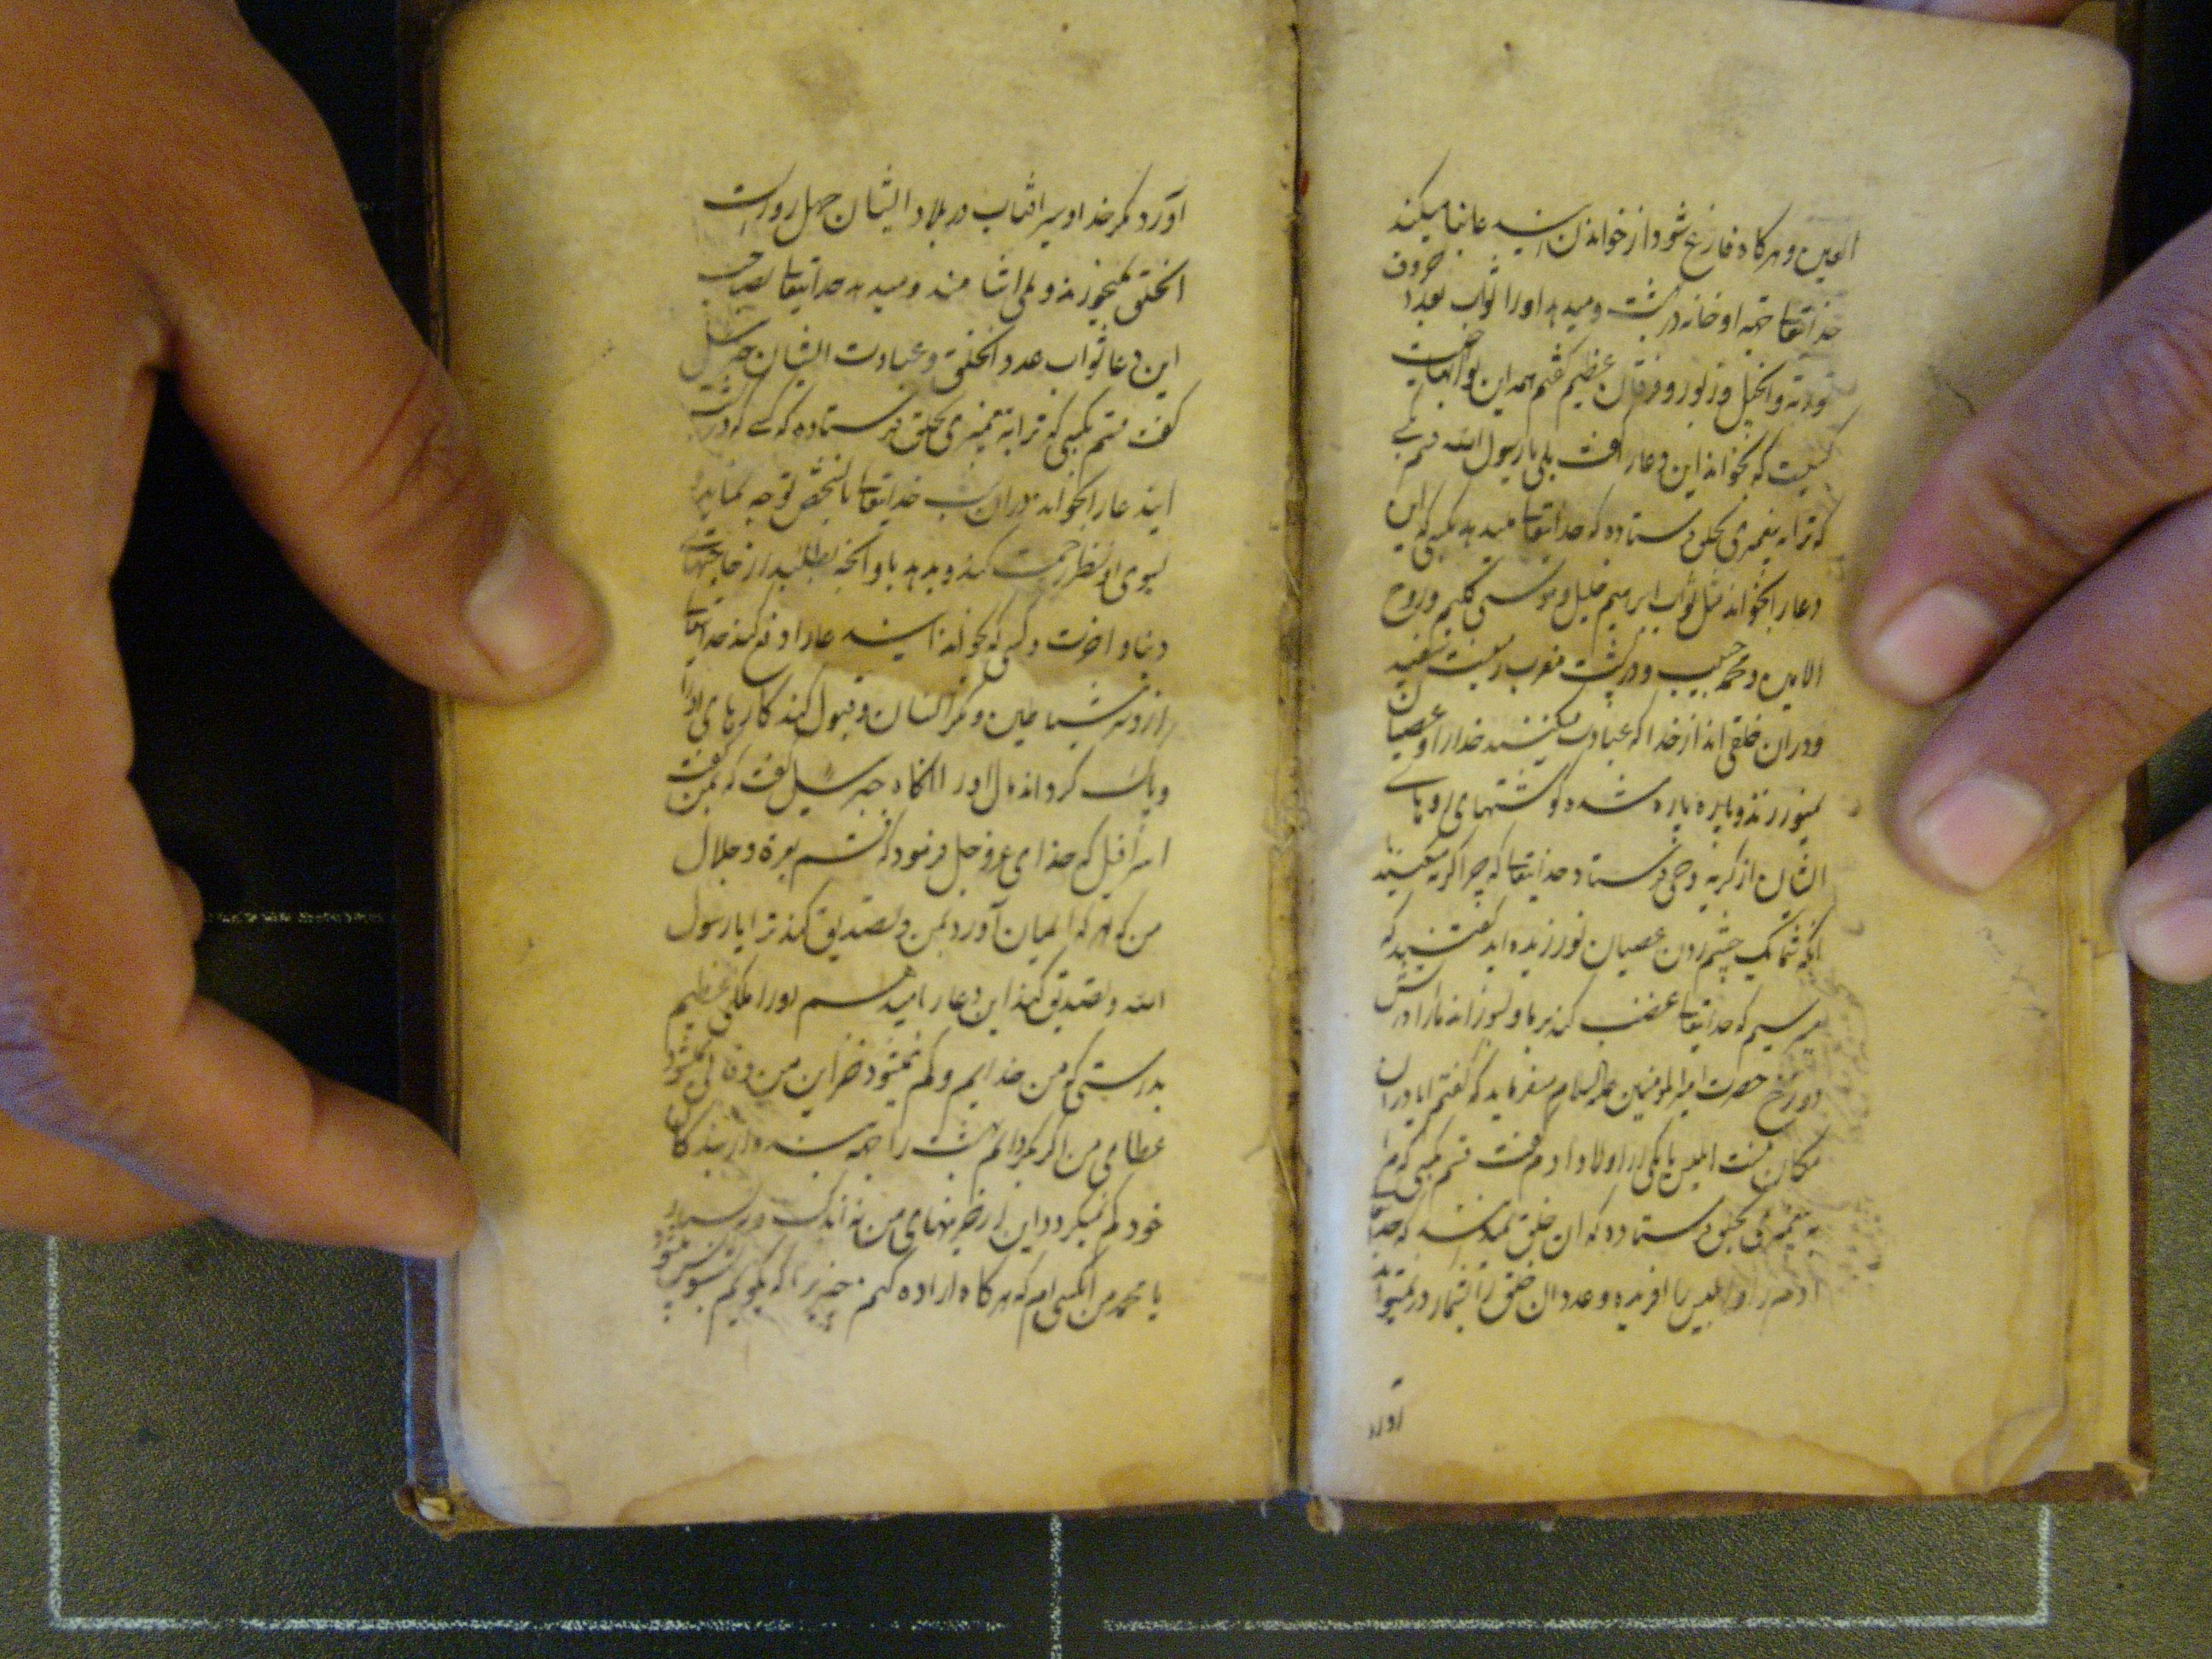 العین و هرکاه فارغ شود از خواندن این دعا بنا میکند
خدایتعالی جهة او خانه در بهشت و میدهد او را ثواب بعدد حروف
توریة و انجیل و زبور و فرقان عظیم گفتم همه این ثوابها جهت
کسیست که بخواند این دعا را گفت بلی یا رسول الله قسم بکسی
که ترا به پیغمبری بخلق فرستاده که خدایتعالی میدهد بکسی که این
دعا را بخواند مثل ثواب ابرهیم خلیل و موسی کلیم و روح
الامین و محمد حبیب و در پشت مغرب زمینیست سفید
و در ان خلقی اند از خدا که عبادت میکنند خدا را و عصیان
نمیورزند و پاره پاره شده کوشتهای رویهای
ایشان از کریه وحی فرستاد خدایتعالی که چرا کریه میکنید
انکه شما یک چشم زدن عصیان نورزیده اید کفتند که
میترسیم که خدایتعالی غضب کند بر ما و بسوزاند ما را در اتش
دوزخ حضرت امیرالمومنین علیه السلام میفرماید که کفتم ایا در ان
مکان هست ابلیس یا یکی از اولاد ادم گفت قسم بکسی که مرا
به پیغمبری بخلق فرستاده که ان خلق نمیدانند که خدا
ادم را و ابلیس را افریده و عدد ان خلق را بشمار در نمیتواند
آورد
اورد مکر خدا و سیر افتاب در بلاد ایشان چهل روزاست
انخلق نمیخورند و نمی اشامند و میدهد خدایتعالی بصاحب
این دعا ثواب عدد انخلق و عبادت ایشان جبرئیل
گفت قسم بکسی که ترا به پیغمبری بخلق فرستاده که کسی که در شب
ایندعا را بخواند در ان شب خدایتعالی بانشخص توجه نماید و
بسوی او نظر رحمت کند و بدهد باو انچه بطلبد از حاجتهای
دنیا و اخرت و کسی که بخواند این دعا را دفع کند خدایتعالی
از او شر شیاطین و مکر ایشان و قبول کند کارهای او را
و پاک کرداند مال او را انکاه جبرئیل گفت که بمن گفت
اسرافیل که خدای عز و جل فرمود که قسم بعزة و جلال
من که هرکه ایمان آورد بمن و تصدیق کند ترا یا رسول
الله و تصدیق کند این دعا را میدهم او را ملکی عظیم
بدرستی که من خدایم و کم نمیشود خزاین من و فانی نمیشود
عطای من اکر بکردانم بهشت را جهة بنده از بندکان
خود کم نمیکردد این از خزینهای من نه اندک و نه بسیار
یا محمد من انکسی ام که هرکاه اراده کنم چیزیرا که بکویم بشو پس میشود